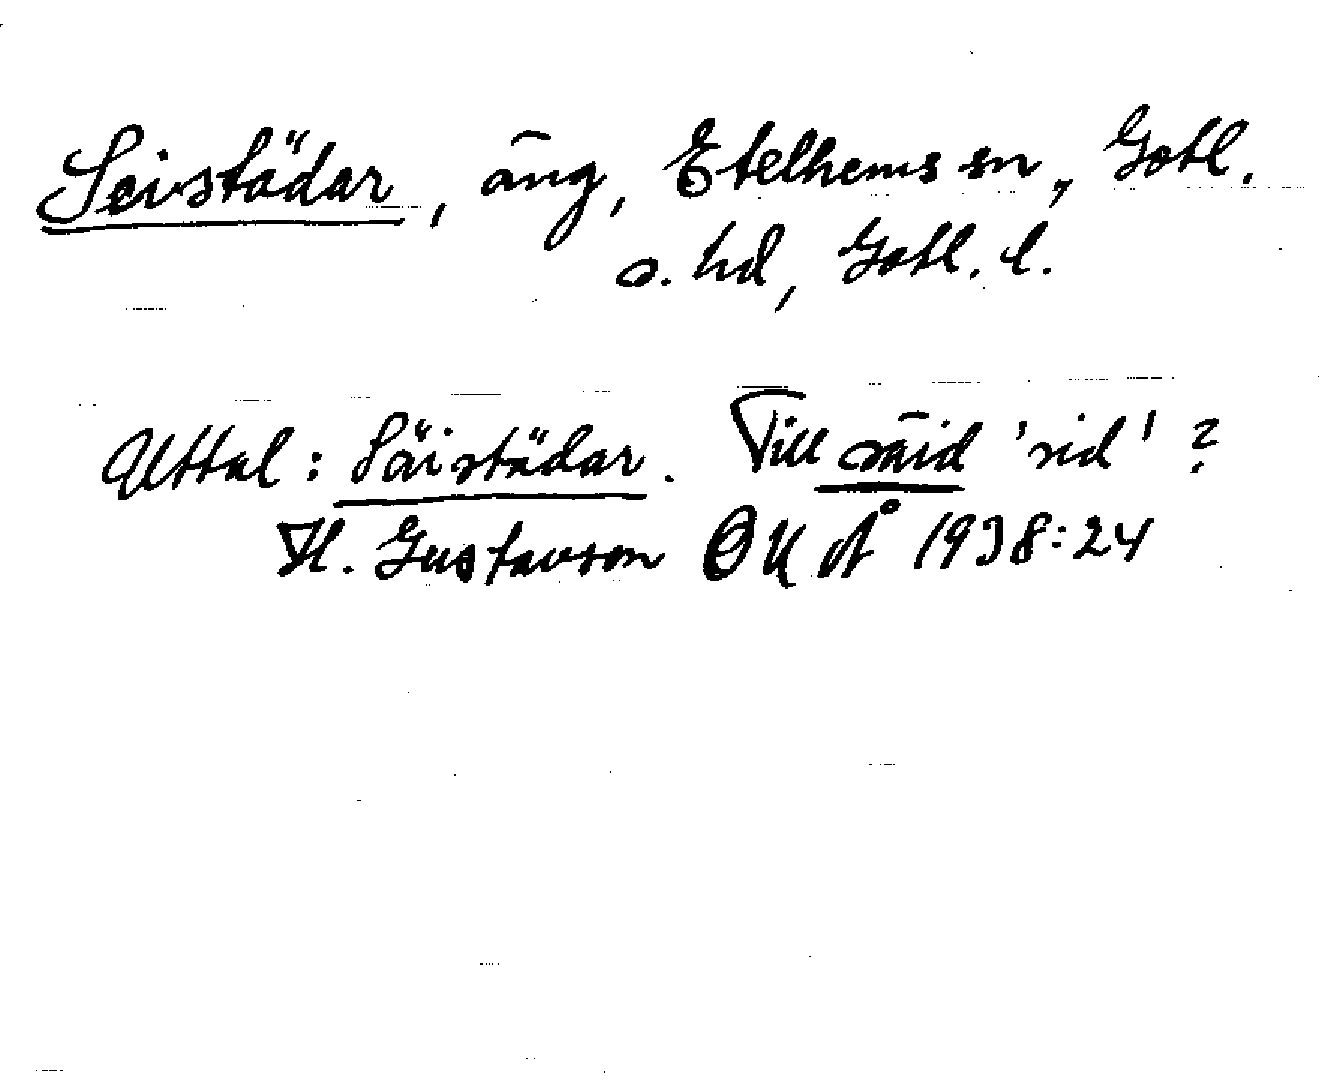 Seistädar, äng, Etelhems sn, Gotl.
s. hd, Gotl. l.
Uttal: Säistädar. Till säid 'sid' ?
H. Gustavson OUÅ 1938:24